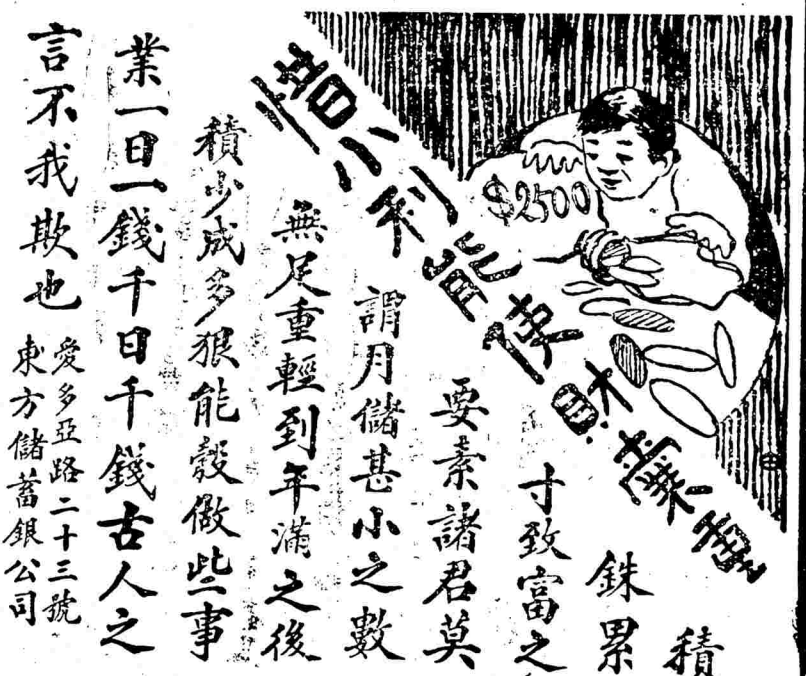 惜小利能使財重
$2500
積
銖累
寸致富之
要素諸君莫
謂月儲甚小之數
無足重輕到年滿之後
積少成多狠能彀做些事
業一日一錢千日千錢古人之
言不我欺也
愛多亞路二十三號
東方儲蓄銀公司